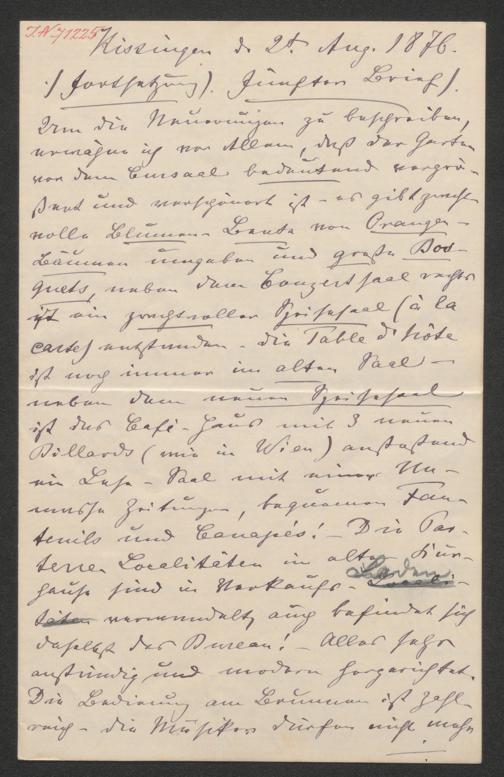 I.N. 71225
Kissingen d. 2t. Aug. 1876.
./ Fortsetzung). Fünfter Brief).
Um die Neuerungen zu beschreiben,
erwähne ich vor Allem, daß der Garten
vor dem Cursaal bedeutend vergrö-
ßert und verschönert ist – es gibt pracht-
volle Blumen-Beete von Orangen-
Bäumen umgeben und große Bos-
quets, neben dem Conzertsaal rechts
ist ein prachtvoller Speisesaal (à la
carte) entstanden – die Table d'hôte
ist noch immer im alten Saal –
neben dem neuen Speisesaal
ist das Café-Haus mit 3 neuen
Billards (wie in Wien) anstoßend
ein Lese-Saal mit einer Un-
masse Zeitungen, bequemen Fau-
teuils und Canapés! – Die Par-
terre Localitäten im alten Kur-
hause sind in Verkaufs- Laden
verwandelt, auch befindet sich
daselbst das Bureau! – Alles sehr
anständig und modern hergerichtet.
Die Bedienung am Brunnen ist zahl-
reich – die Musiker dürfen nicht mehr